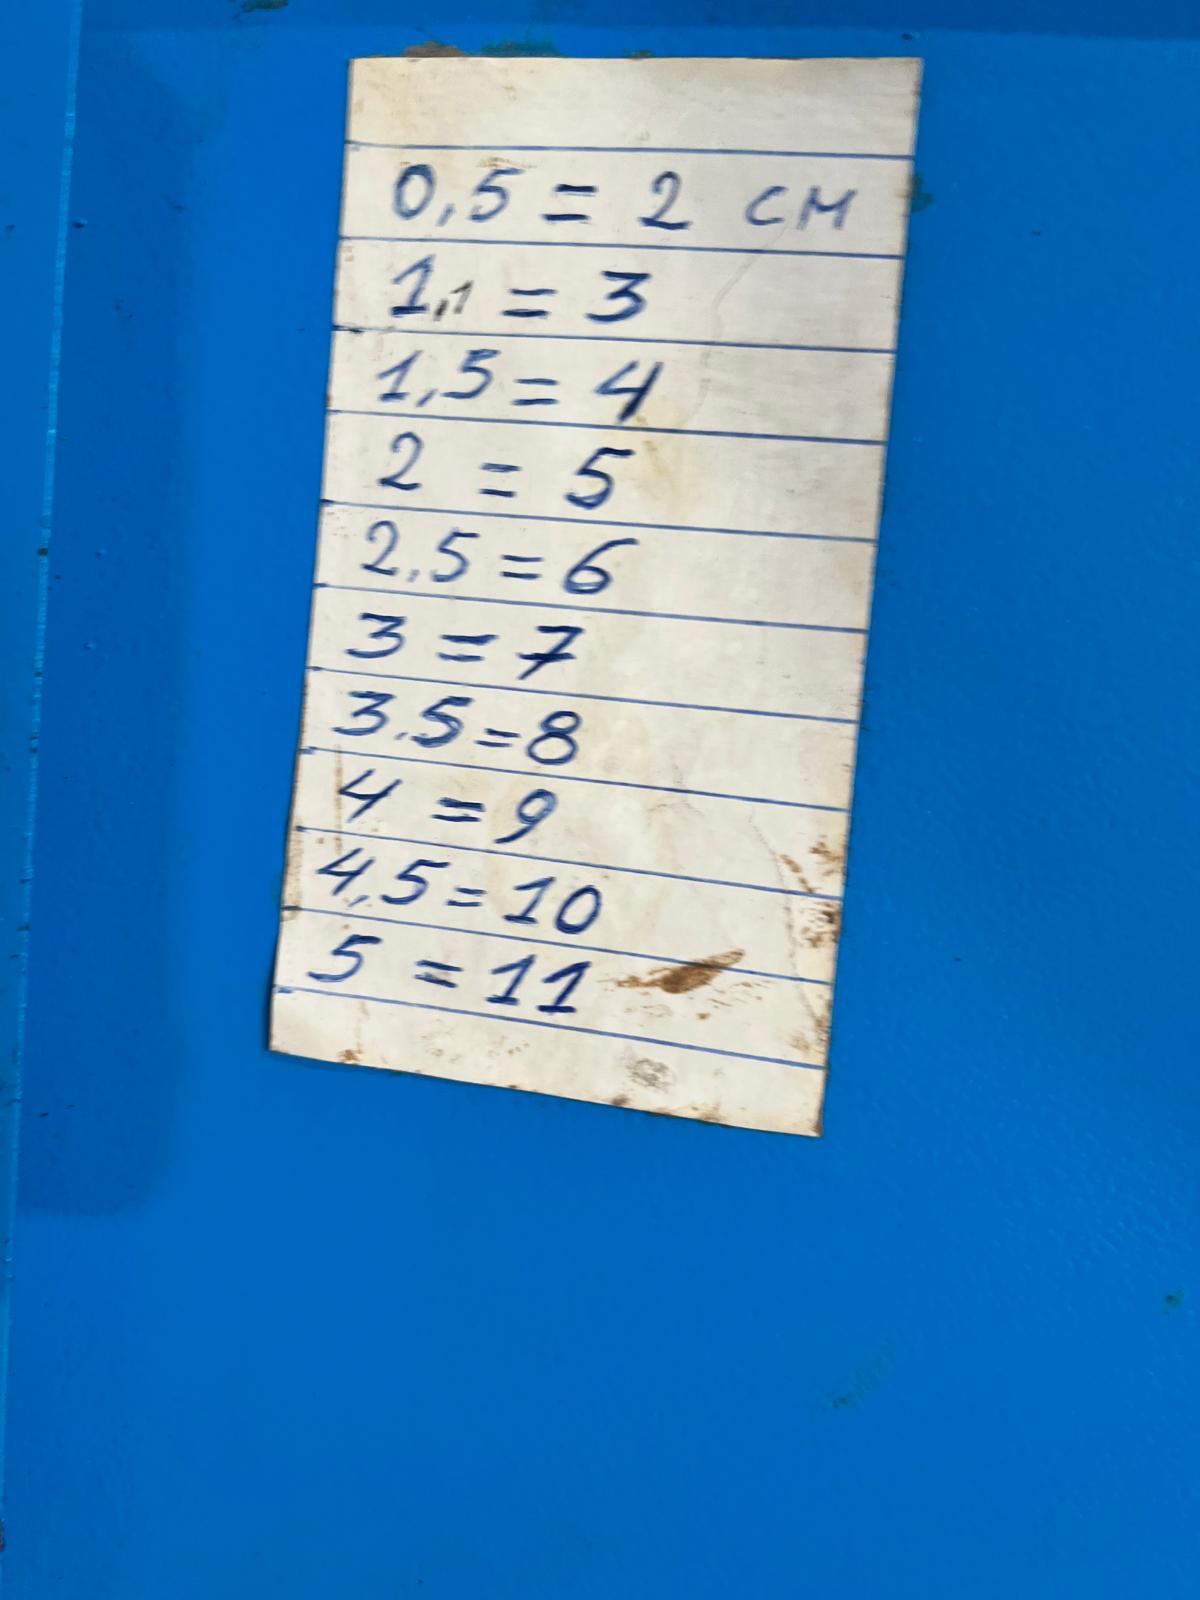 0,5 = 2 см
1,1 = 3
1,5 = 4
2 = 5
2,5 = 6
3 = 7
3,5 = 8
4 = 9
4,5 = 10
5 = 11